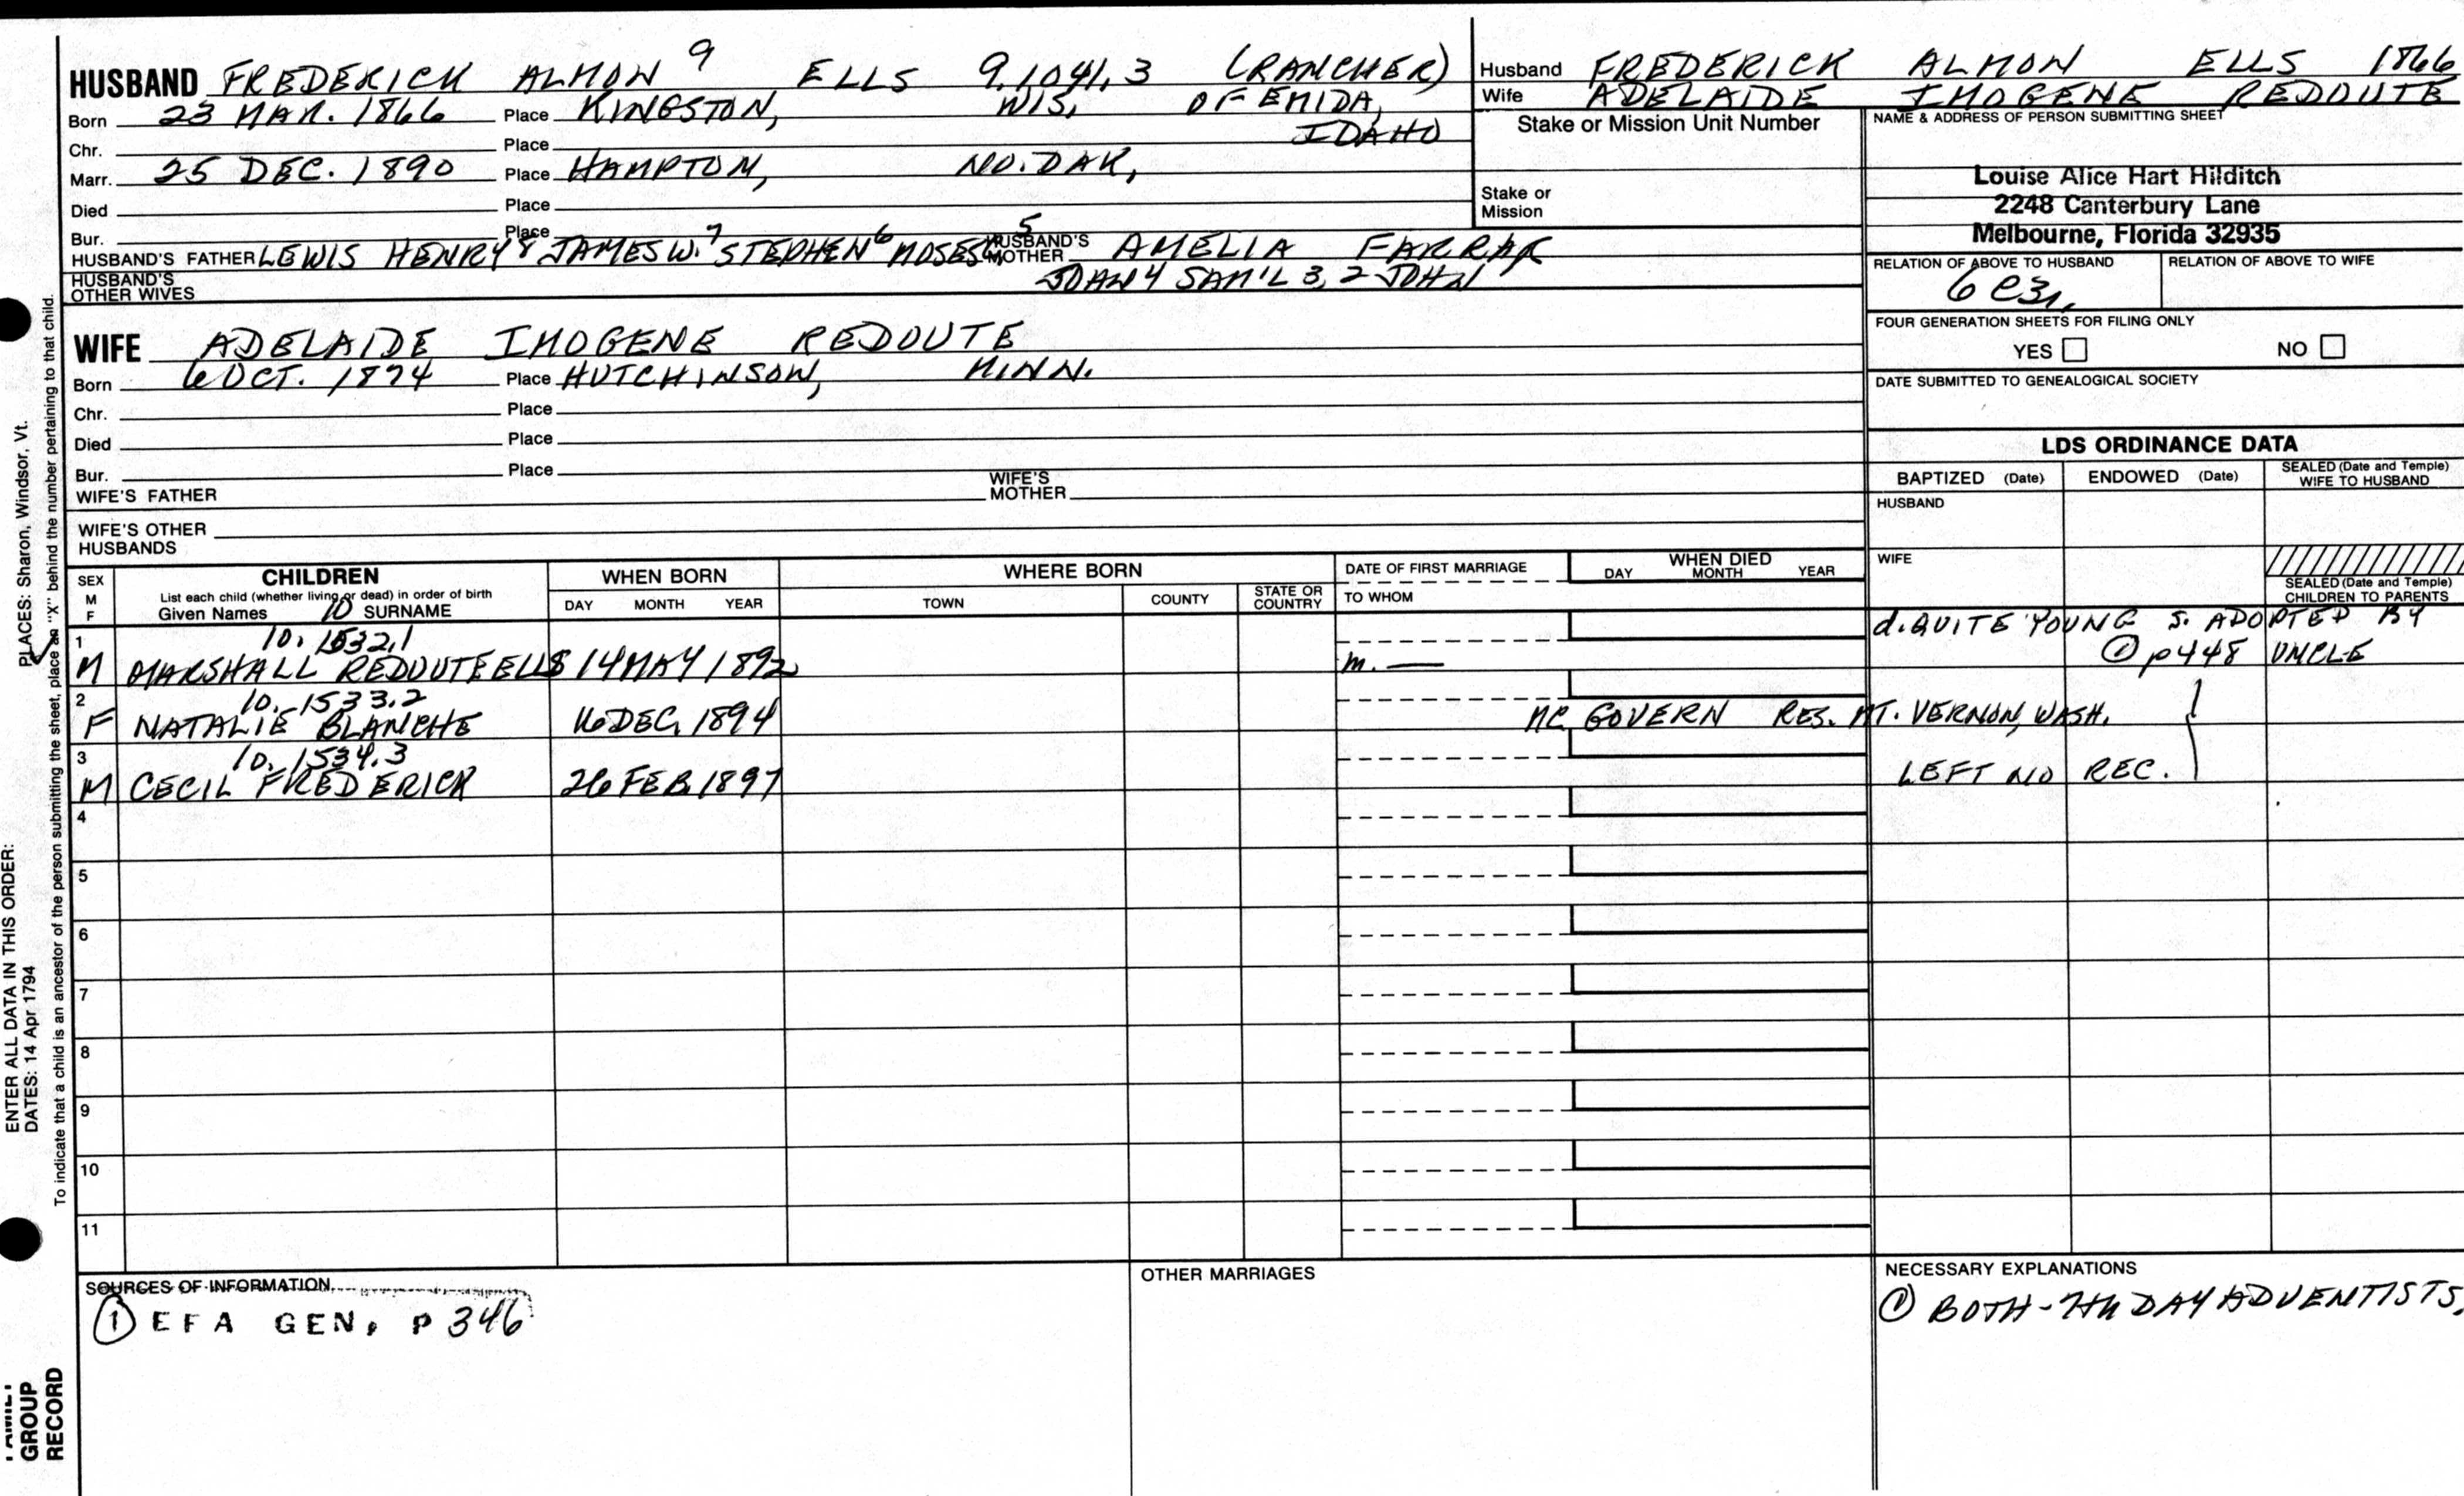 HUSBAND FREDERICK ALMON 9 ELLS 9.1041.3 (RANCHER)
Born 23 MAR. 1866 Place KINGSTON, WIS. OF EMIDA, IDAHO
Chr. Place
Marr. 25 DEC. 1890 Place HAMPTON, NO. DAK,
Died Place
Bur. Place
HUSBAND'S FATHER LEWIS HENRY 8 JAMES W. 7 STEPHEN 6 MOSES 5 HUSBAND'S MOTHER AMELIA FARRAR
HUSBAND'S OTHER WIVES JOHN 4 SAM'L 3, 2 JOHN
Husband FREDERICK ALMON ELLS 1866
Wife ADELAIDE IMOGENE REDOUTE
Stake or Mission Unit Number
Stake or Mission
NAME & ADDRESS OF PERSON SUBMITTING SHEET
Louise Alice Hart Hilditch
2248 Canterbury Lane
Melbourne, Florida 32935
RELATION OF ABOVE TO HUSBAND RELATION OF ABOVE TO WIFE
FOUR GENERATION SHEETS FOR FILING ONLY
YES NO
DATE SUBMITTED TO GENEALOGICAL SOCIETY
WIFE ADELAIDE IMOGENE REDOUTE
Born 6 OCT. 1874 Place HUTCHINSON, MINN.
Chr. Place
Died Place
Bur. Place
WIFE'S FATHER WIFE'S MOTHER
WIFE'S OTHER HUSBANDS
LDS ORDINANCE DATA
BAPTIZED (Date) ENDOWED (Date) SEALED (Date and Temple) WIFE TO HUSBAND
HUSBAND
WIFE
SEALED (Date and Temple) CHILDREN TO PARENTS
SEX M F
CHILDREN
List each child (whether living or dead) in order of birth
Given Names 10 SURNAME
WHEN BORN
DAY MONTH YEAR
WHERE BORN
TOWN COUNTY STATE OR COUNTRY
DATE OF FIRST MARRIAGE
TO WHOM
WHEN DIED
DAY MONTH YEAR
1 10.1532.1 d. QUITE YOUNG S. ADOPTED BY
M MARSHALL REDOUTE ELLS 14 MAY 1892 m. — ① p448 UNCLE
2 10.1533.2
F NATALIE BLANCHE 16 DEC, 1894 MC GOVERN RES. MT. VERNON, WASH.
3 10.1534.3
M CECIL FREDERICK 26 FEB 1897 LEFT NO REC.
4
5
6
7
8
9
10
11
SOURCES OF INFORMATION
① EFA GEN, P 346
OTHER MARRIAGES
NECESSARY EXPLANATIONS
① BOTH - 7th DAY ADVENTISTS.
ENTER ALL DATA IN THIS ORDER:
DATES: 14 Apr 1794 PLACES: Sharon, Windsor, Vt.
To indicate that a child is an ancestor of the person submitting the sheet, place an "X" behind the number pertaining to that child.
GROUP
RECORD